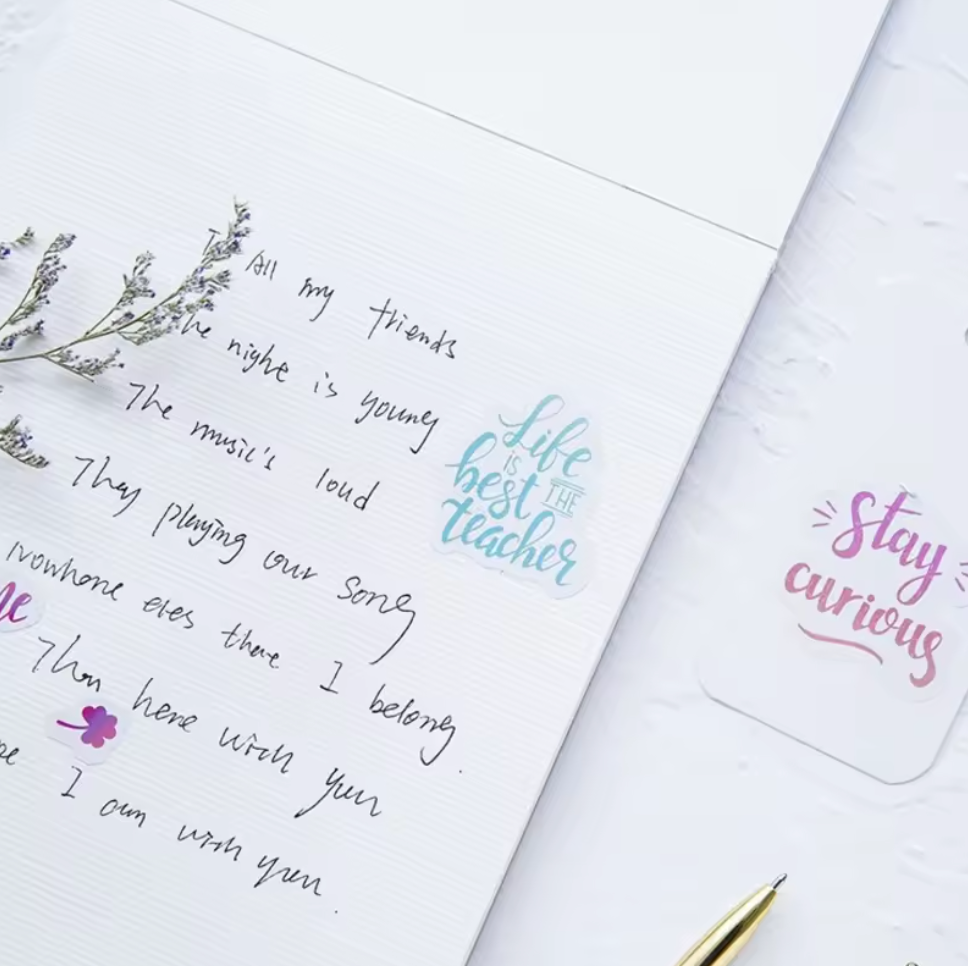 All my friends
he nighe is young
The music's loud
They playing our song
nowhone eles thene I belong.
Than here wich you
I am wich you.
Life
is
best THE
teacher
Stay
curious